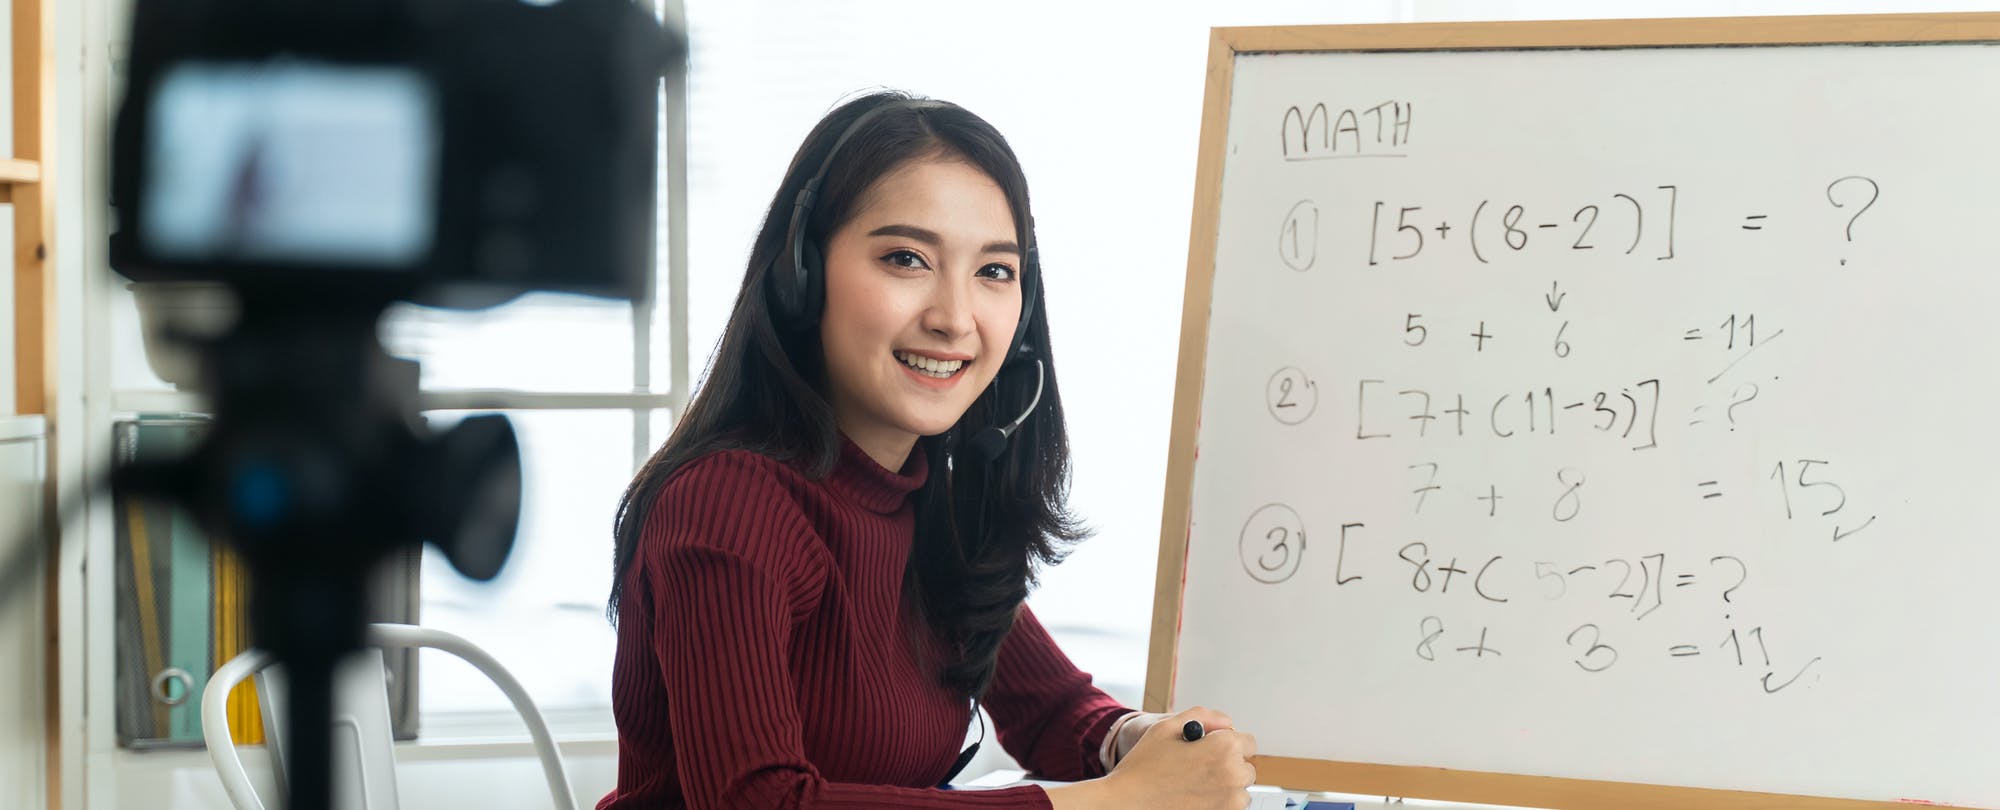 MATH
① [5+(8-2)] = ?
↓
5 + 6 = 11
② [7+(11-3)] = ?
7 + 8 = 15
③ [8+(5-2)] = ?
8 + 3 = 11